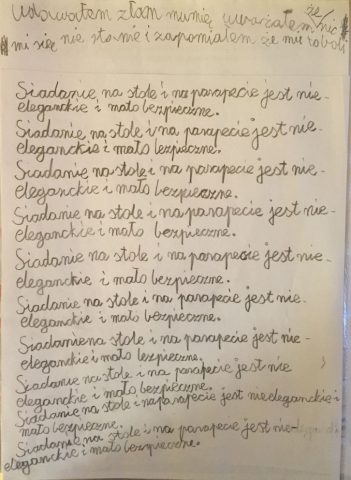 że/nic
mi się nie stanie i zapomiałem że nie
Siadanie na stole i na parapecie jest nie-
eleganckie i mało bezpieczne.
Siadanie na stole i na parapecie jest nie-
eleganckie i mało bezpieczne.
Siadanie na stole i na parapecie jest nie-
eleganckie i mało bezpieczne.
Siadanie na stole i na parapecie jest nie-
eleganckie i mało bezpieczne.
Siadanie na stole i na parapecie jest nie-
eleganckie i mało bezpieczne.
Siadanie na stole i na parapecie jest nie-
eleganckie i mało bezpieczne.
Siadanie na stole i na parapecie jest nie-
eleganckie i mało bezpieczne.
Siadanie na stole i na parapecie jest nie
eleganckie i mało bezpieczne.
Siadanie na stole i na parapecie jest nieeleganckie i
mało bezpieczne.
Siadanie na stole i na parapecie jest nie-
eleganckie i mało bezpieczne.